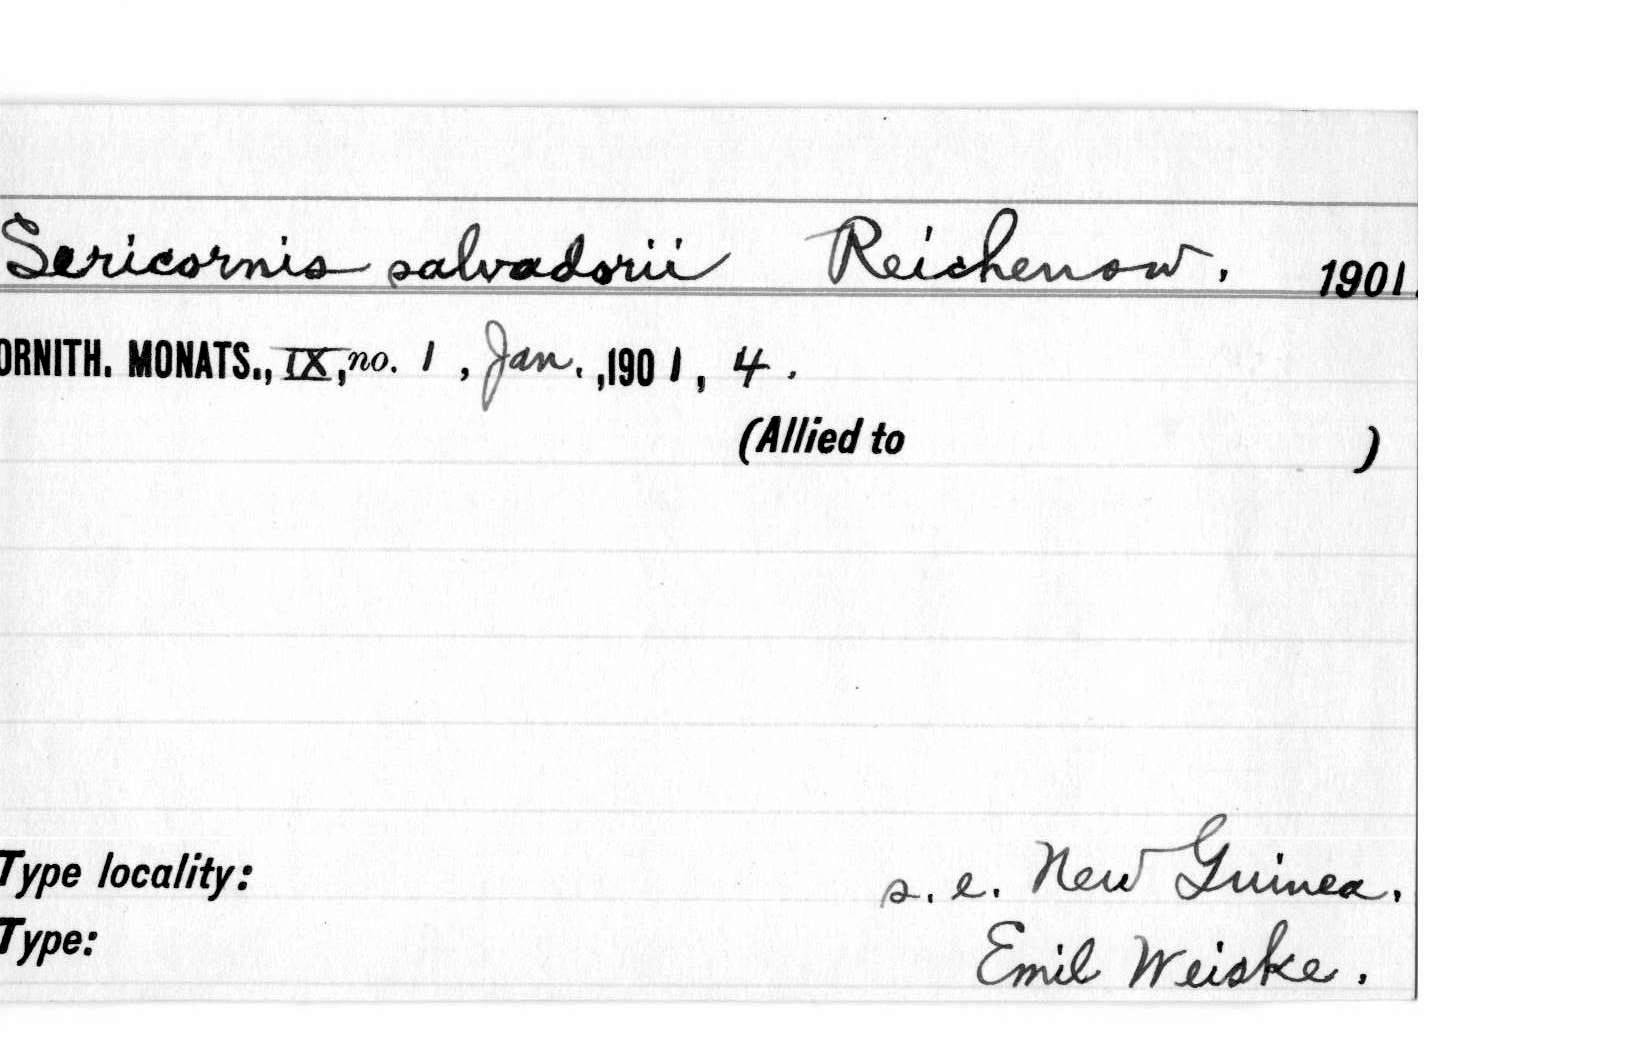 Sericornis salvadorii Reichenow. 1901.
ORNITH. MONATS., IX, no. 1, Jan., 1901, 4.
(Allied to )
Type locality: s. e. New Guinea.
Type: Emil Weiske.